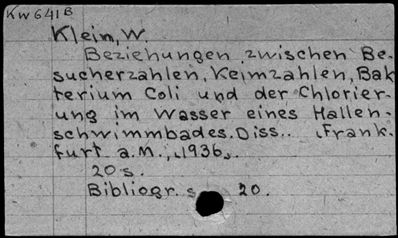 KW641B
Klein, W.
Beziehungen zwischen Be-
sucherzahlen, Keimzahlen, Bak
terium Coli und der Chlorier-
ung im Wasser eines Hallen-
schwimmbades. Diss.. Frank-
furt a.M., 1936.
20 s.
Bibliogr. s 20.